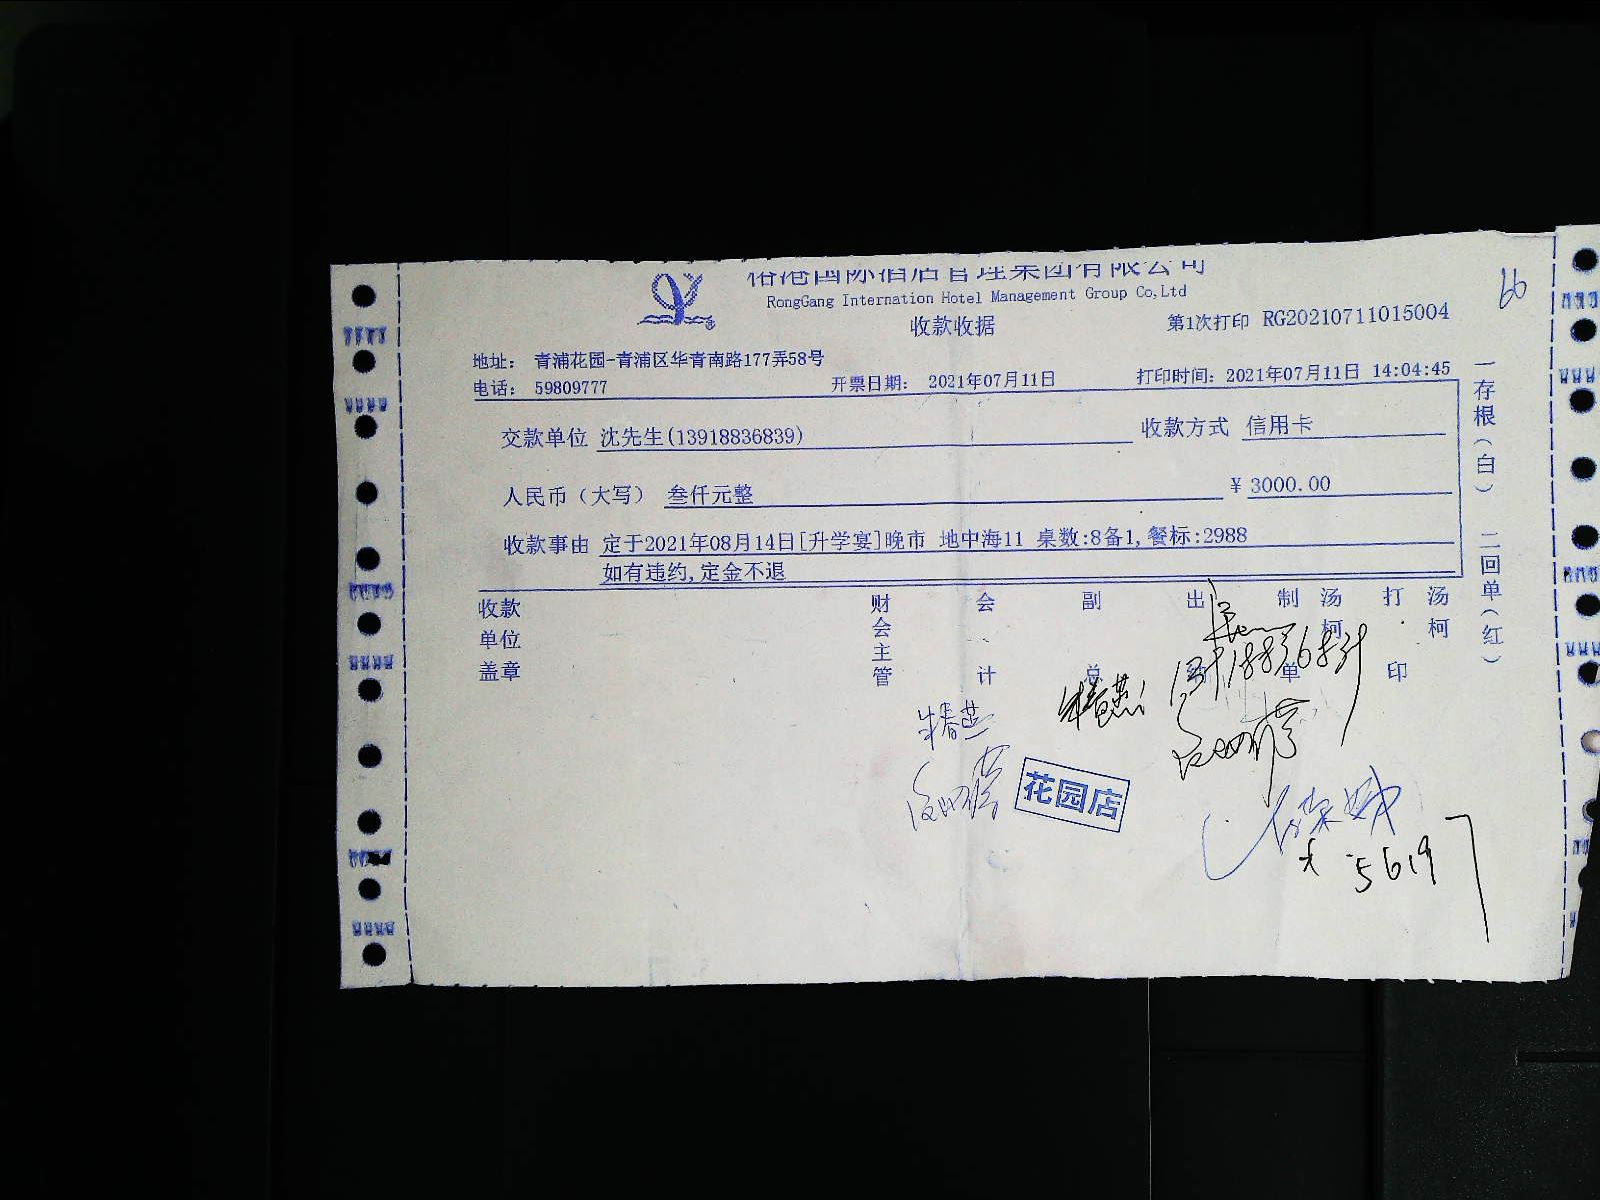 国际酒店管理集团有限公司
RongGang Internation Hotel Management Group Co,Ltd
收款收据
第1次打印 RG20210711015004
66
地址： 青浦花园-青浦区华青南路177弄58号
电话： 59809777
开票日期： 2021年07月11日
打印时间：2021年07月11日 14:04:45
交款单位 沈先生(13918836839)
收款方式 信用卡
人民币（大写） 叁仟元整
¥ 3000.00
收款事由 定于2021年08月14日[升学宴]晚市 地中海11 桌数:8备1,餐标:2988
如有违约,定金不退
收款单位盖章
财会主管
会计
副总
出
制单
汤柯
打印
汤柯
一存根（白） 二回单（红）
朱春燕
朱春燕
花园店
5619